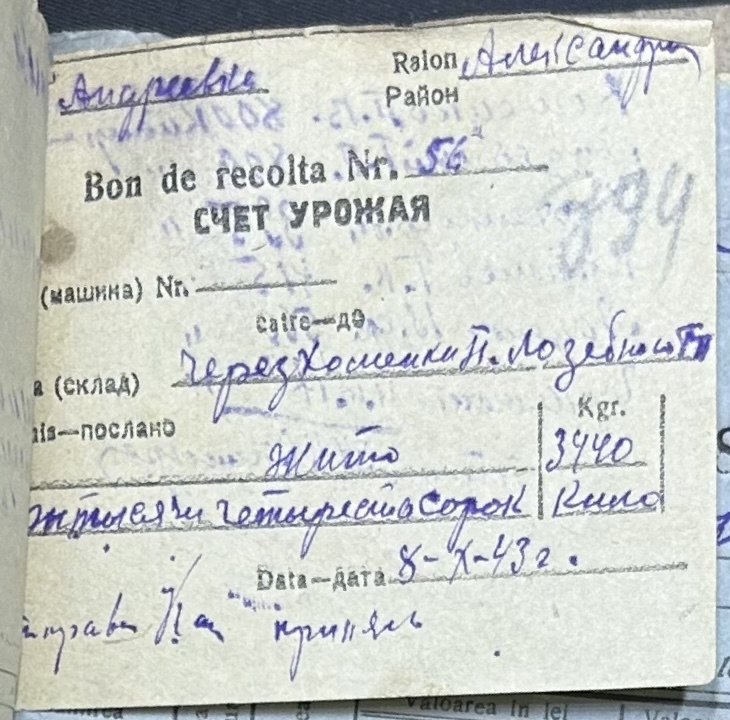 Андреевка Raion Александр
Район
Bon de recolta Nr. 56
СЧЕТ УРОЖАЯ
394
(машина) Nr.
catre—до
а (склад) через Хоменки П.
nis—послано Kgr.
жито 3440
тысячи четыреста сорок Кило
Data—дата 8-X-43 г.
принял
Valoarea in lei